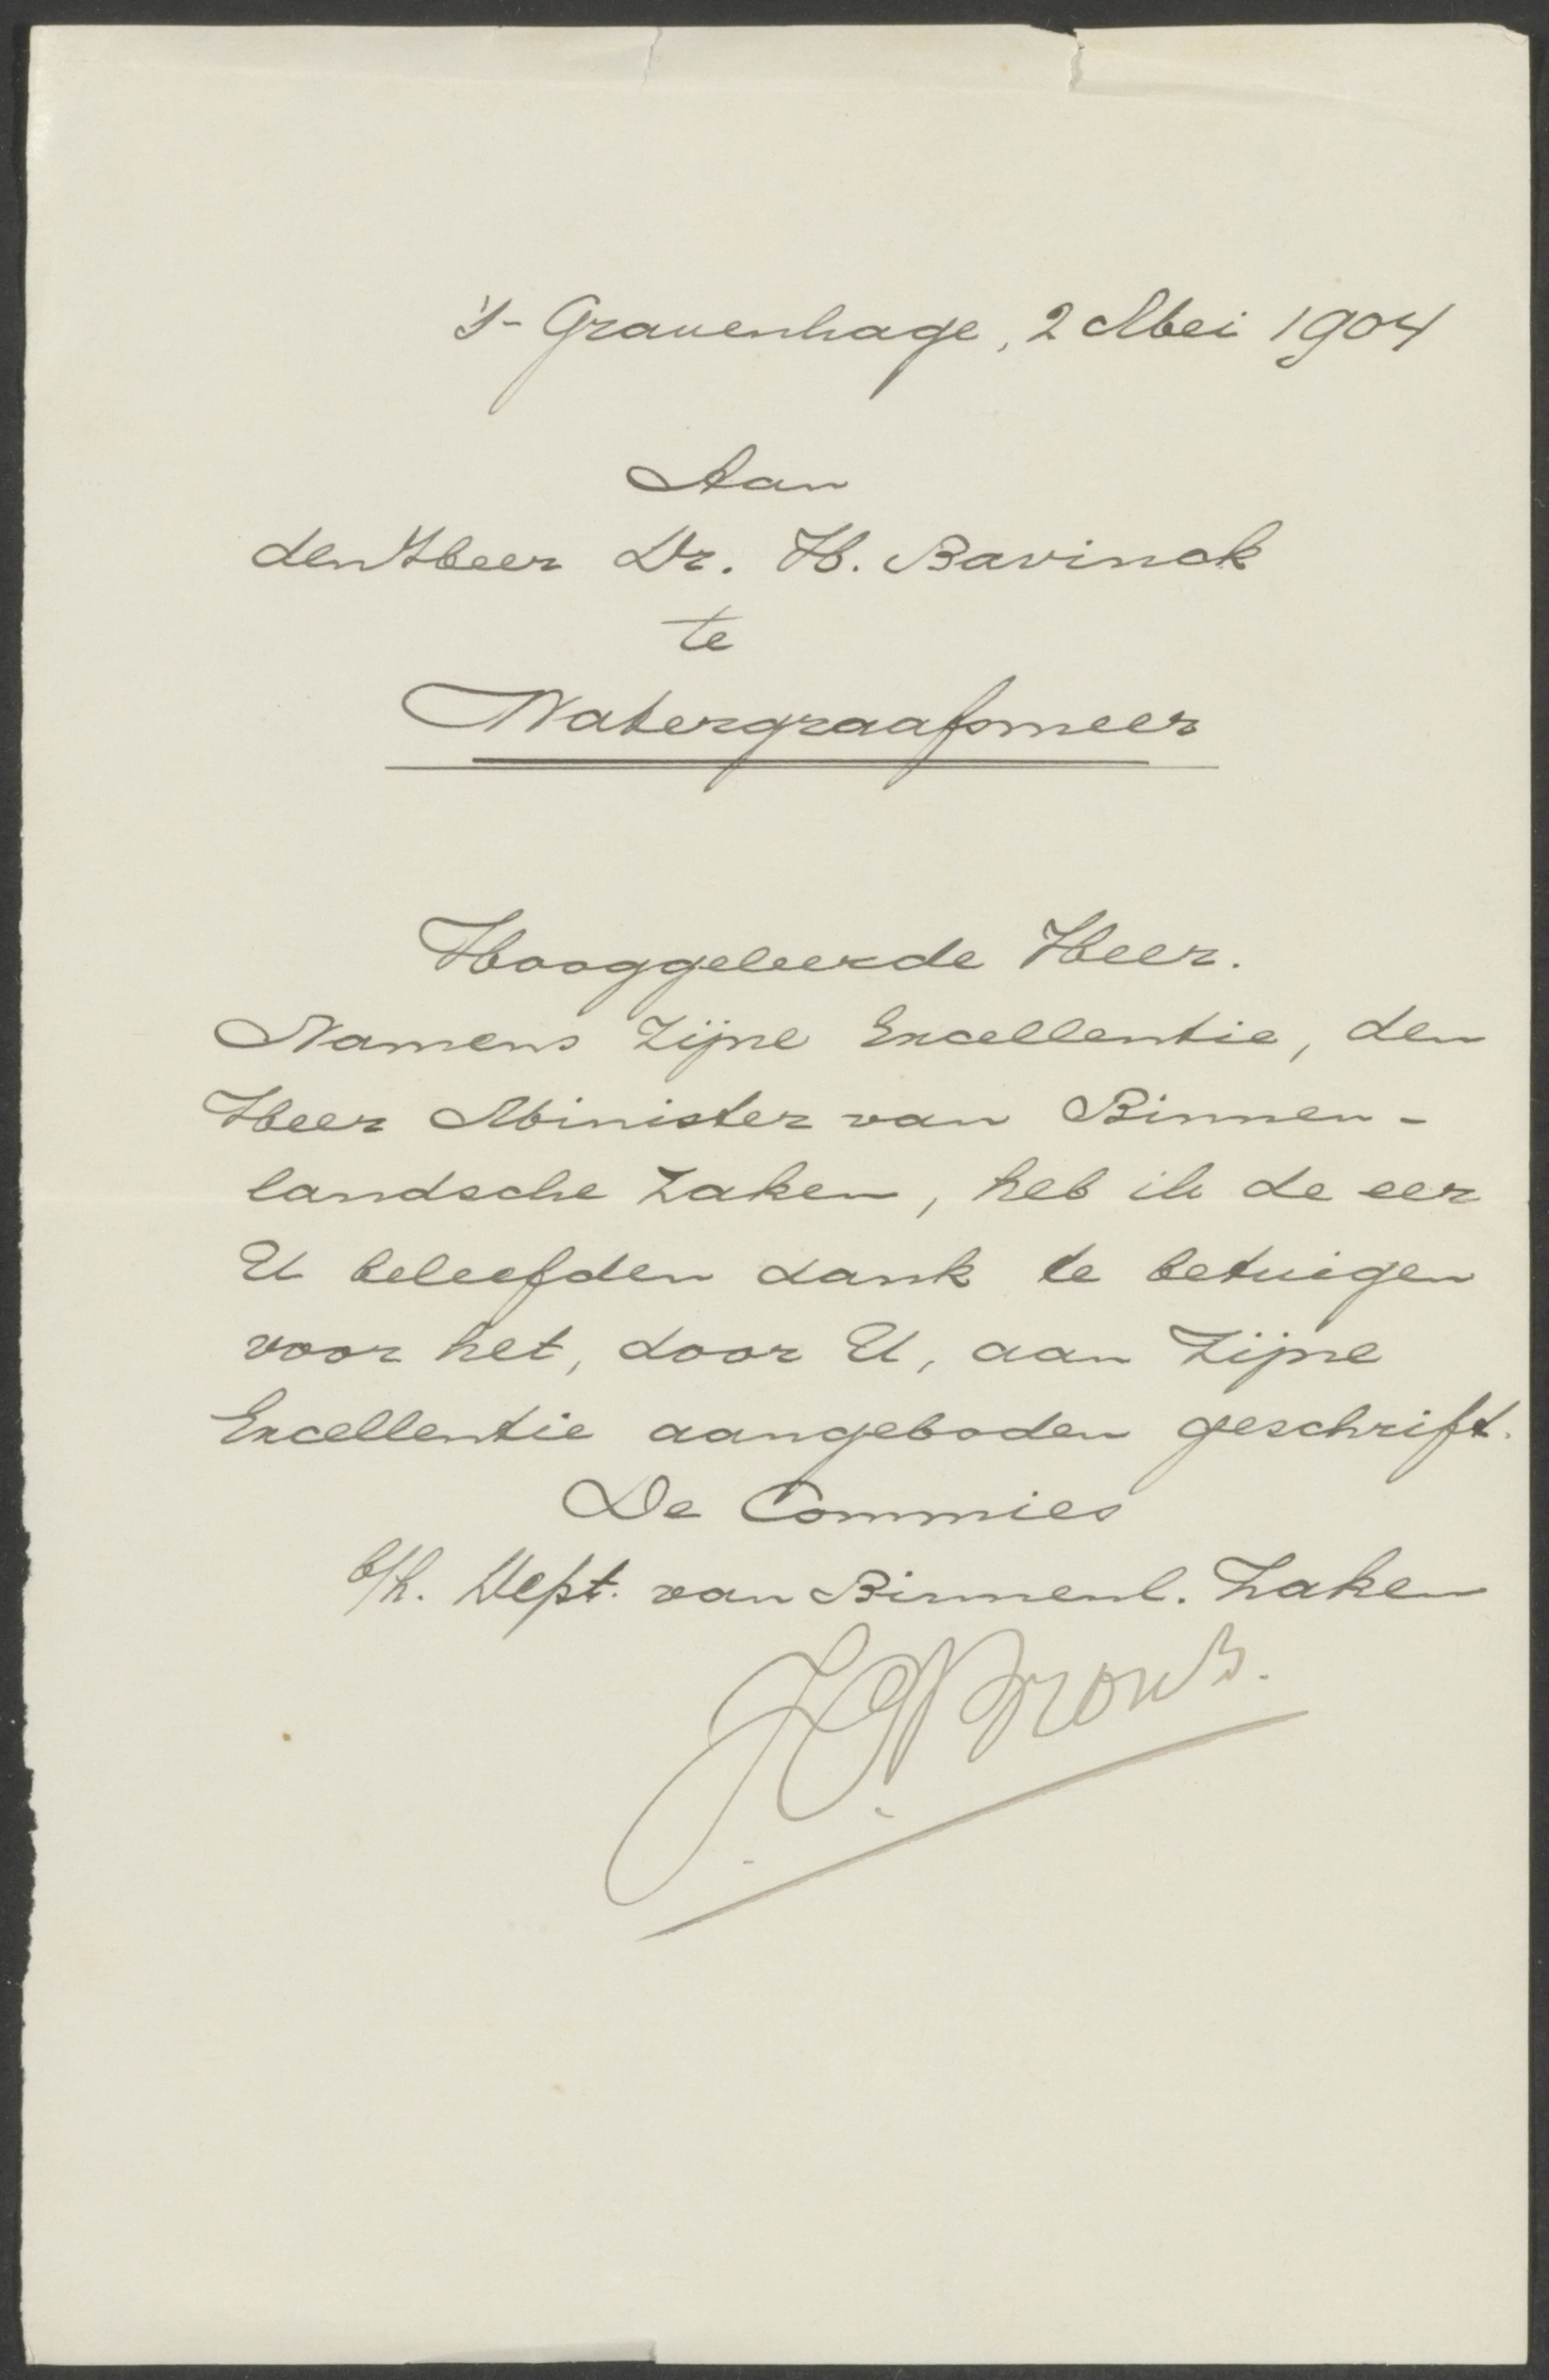 's-Gravenhage, 2 Mei 1904
Aan
den Heer Dr. H. Bavinck
te
Watergraafsmeer
Hooggeleerde Heer.
Namens Zijne Excellentie, den
Heer Minister van Binnen-
landsche Zaken, heb ik de eer
U beleefden dank te betuigen
voor het, door U, aan Zijne
Excellentie aangeboden geschrift.
De Commies
b/h. Dept. van Binnenl. Zaken